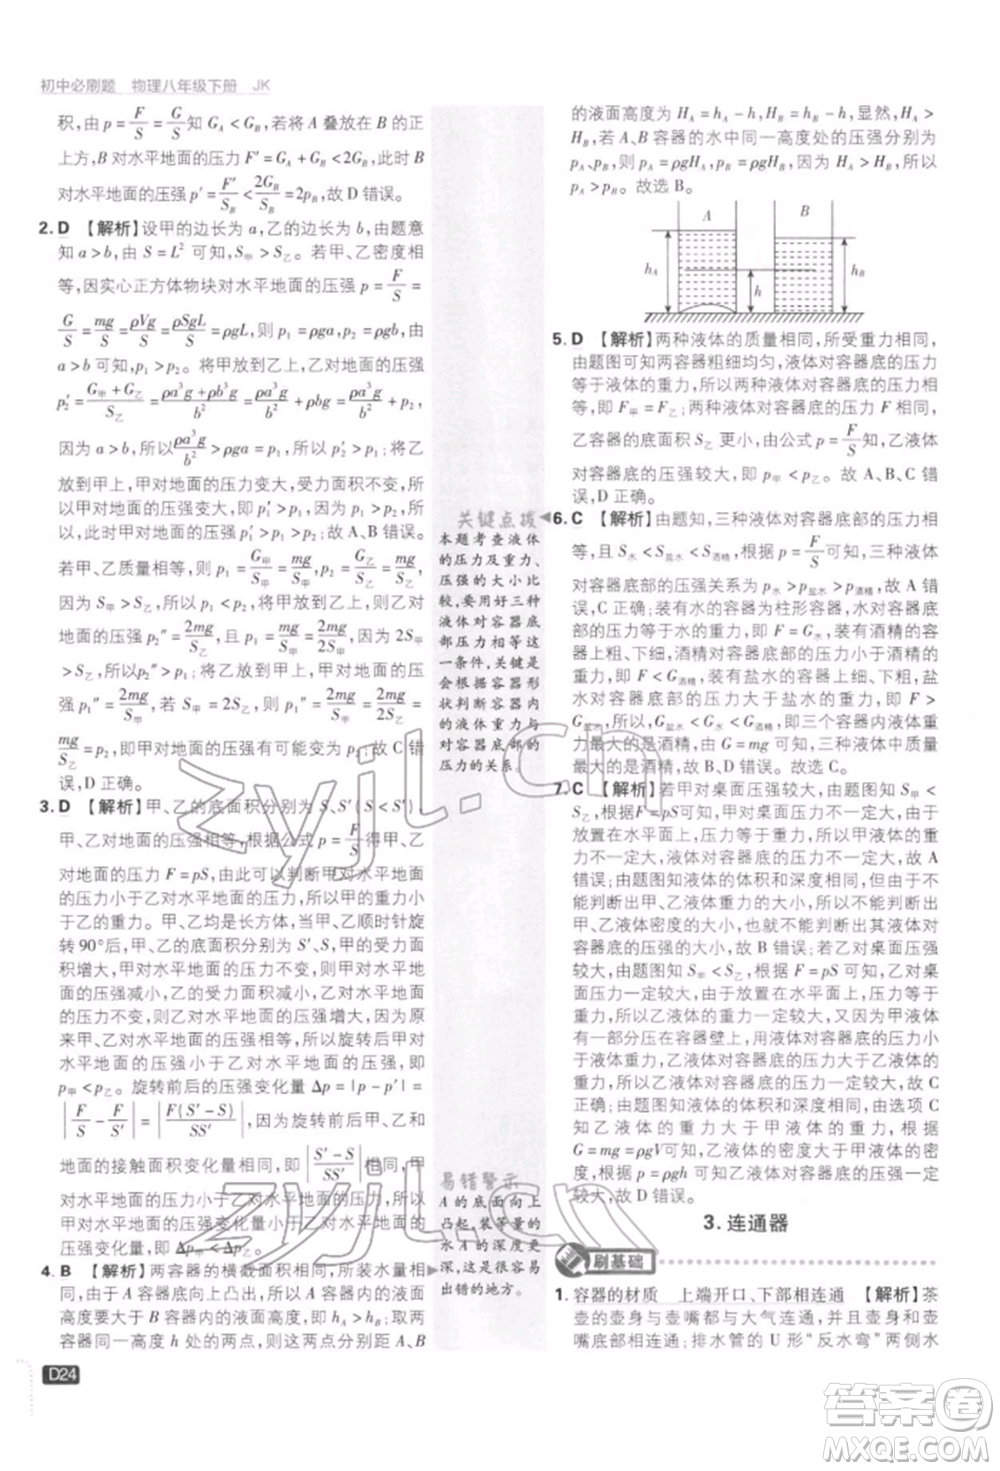 初中必刷题 物理八年级下册 JK
积,由 p = F/S = G/S 知 G_A < G_B,若将 A 叠放在 B 的正
上方,B 对水平地面的压力 F′ = G_A + G_B < 2G_B,此时 B
对水平地面的压强 p′ = F′/S_B < 2G_B/S_B = p_B,故 D 错误。
2. D 【解析】设甲的边长为 a,乙的边长为 b,由题意
知 a > b,由 S = L² 可知,S甲 > S乙。若甲、乙密度相
等,因实心正方体物块对水平地面的压强 p = F/S =
G/S = mg/S = ρVg/S = ρSgL/S = ρgL,则 p₁ = ρga,p₂ = ρgb,由
a > b 可知,p₁ > p₂。将甲放到乙上,乙对地面的压强
p₂′ = (G甲 + G乙)/S乙 = (ρa³g + ρb³g)/b² = ρa³g/b² + ρbg = ρa³g/b² + p₂,
因为 a > b,所以 ρa³g/b² > ρga = p₁,所以 p₂′ > p₁;将乙
放到甲上,甲对地面的压力变大,受力面积不变,所
以甲对地面的压强变大,即 p₁′ > p₁,因为 p₁ > p₂,所
以,此时甲对地面的压强 p₁′ > p₂,故 A、B 错误。
若甲、乙质量相等,p₁ = G甲/S甲 = mg/S甲,p₂ = G乙/S乙 = mg/S乙,
因为 S甲 > S乙,则 p₁ < p₂;将甲放到乙上,乙对
地面的压强 p₂″ = 2mg/S乙,p₁ = mg/S甲,因为 2S甲
> S乙,所以 p₂″ > p₁;将乙放到甲上,甲对地面的压
强 p₁″ = 2mg/S甲,若 S甲 = 2S乙,则 p₁″ = 2mg/S甲 = 2mg/2S乙 =
mg/S乙 = p₂,即甲对地面的压强有可能变为 p₂,故 C 错
误,D 正确。
3. D 【解析】甲、乙的底面积分别为 S、S′(S < S′),
甲、乙对水平地面的压强相等,根据公式 p = F/S 得甲、乙
对地面的压力 F = pS,由此可以判断甲对水平地面
的压力小于乙对水平地面的压力,所以甲的重力小
于乙的重力。甲、乙均是长方体,当甲、乙顺时针旋
转 90°后,甲、乙的底面积分别为 S′、S,则甲对水平
地面的压力不变,乙对水平地面的压力不变,甲对
地面的压强减小,乙对地面的压强增大,由于原
来甲、乙对水平地面的压强相同,所以甲对水平地
面的压强小于乙对水平地面的压强,即
p甲 < p乙。旋转前后的压强变化量 Δp = |p − p′| =
|F/S − F/S′| = |F(S′ − S)/SS′|,因为旋转前后甲、乙和
地面的接触面积变化量相同,即 |(S′ − S)/SS′| 相同,甲
对水平地面的压力小于乙对水平地面的压力,所以
甲对水平地面的压强变化量小于乙对水平地面的
压强变化量,即 Δp甲 < Δp乙。
4. B 【解析】两容器的横截面积相同,所装水质量相
同,由于 A 容器底面向上凸出,所以 A 容器内的液面
高度要大于 B 容器内的液面高度;取两容器中距水
平地面同一高度 h 处的两点,这两点分别距 A、B
关键点拨
本题考查液体
的压力及重力、
压强的大小比
较,要用好三种
液体对容器底
部压力相等这
一条件,关键是
会根据容器形
状判断容器内
的液体重力与
对容器底部的
压力的关系。
易错警示
A 的底面向上
凸起,装等量的
水 A 的深度更
深,这是容易
出错的地方。
的液面高度为 H_A = h_A − h,H_B = h_B − h,显然,
H_A > H_B;A、B 容器的水中同一高度处的压强分别为
p_A、p_B,则 p_A = ρgH_A,p_B = ρgH_B,因为 H_A > H_B,所以
p_A > p_B。故选 B。
A
B
h_A
h
h_B
5. D 【解析】两种液体的质量相同,所受重力相同,
由题图可知两容器粗细均匀,液体对容器底的压力
等于液体的重力,所以两种液体对容器底的压力相
等,即 F甲 = F乙;两种液体对容器底的压力 F 相同,
乙容器的底面积 S乙 更小,由公式 p = F/S 知,乙液体
对容器底的压强较大,即 p甲 < p乙。故 A、B、C 错
误,D 正确。
6. C 【解析】由题知,三种液体对容器底部的压力相
等,且 S水 < S盐水 < S酒精,根据 p = F/S 可知,三种液体
对容器底部的压强关系为 p水 > p盐水 > p酒精,故 A、B
错误;装有水的容器为柱形容器,水对容器底部的
压力等于水的重力,即 F = G水,装有酒精的容器形
状上粗、下细,酒精对容器底部的压力小于酒精的
重力,即 F < G酒精;装有盐水的容器上细、下粗,盐
水对容器底部的压力大于盐水的重力,即 F >
G盐水,所以,G盐水 < G水 < G酒精,即三个容器内液体重
力最大的是酒精,由 G = mg 可知三个容器中液体质量
最大的是酒精,故 C 正确,D 错误。故选 C。
7. C 【解析】若甲对桌面的压强较大,因为 S甲 < S乙,
根据 F = pS 可知,甲对桌面的压力不一定大;由于
放置在水平面上,压力等于重力,所以甲的重力
不一定大,因此甲容器中液体的重力不一定大,
因此甲液体对容器底的压力不一定大,故 A
错误;由题图知液体的体积和深度,不能判断
甲、乙液体密度的大小,也不能判断出甲、乙液体
对容器底的压强的大小,故 B 错误;若乙对桌面压强
较大,由于 S甲 < S乙,根据 F = pS 可知,乙对桌
面压力一定较大。由于放置在水平面上,压力等
于重力,所以乙的重力一定较大;由于甲液体
有一部分压在容器壁上,所以甲液体对容器底
的压力小于重力,乙液体对容器底的压力等于
重力,因此乙液体对容器底的压力一定大,故 C
正确;由题图知液体的体积和深度,所以,若已
知乙液体的质量大于甲液体的质量,根据
G = mg = ρgV 可知,乙液体的密度大于甲液体的密
度,根据 p = ρgh 可知乙液体对容器底的压强一定
较大,故 D 错误。
3. 连通器
刷基础
1. 容器的材质 上端开口、下部相连通 【解析】茶
壶的壶身与壶嘴都与大气连通,并且壶身与壶
嘴底部相连通;排水管的 U 形"反水弯"两侧水
D24
zyjl.cn
zyjl.cn
答案圈
MXQE.COM